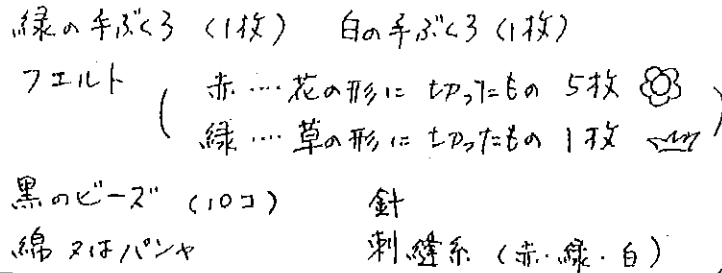 緑の手ぶくろ (1枚) 白の手ぶくろ (1枚)
フェルト (赤…花の形に切ったもの 5枚
緑…草の形に切ったもの 1枚)
黒のビーズ (10コ) 針
綿又はパンヤ 刺縫糸 (赤・緑・白)